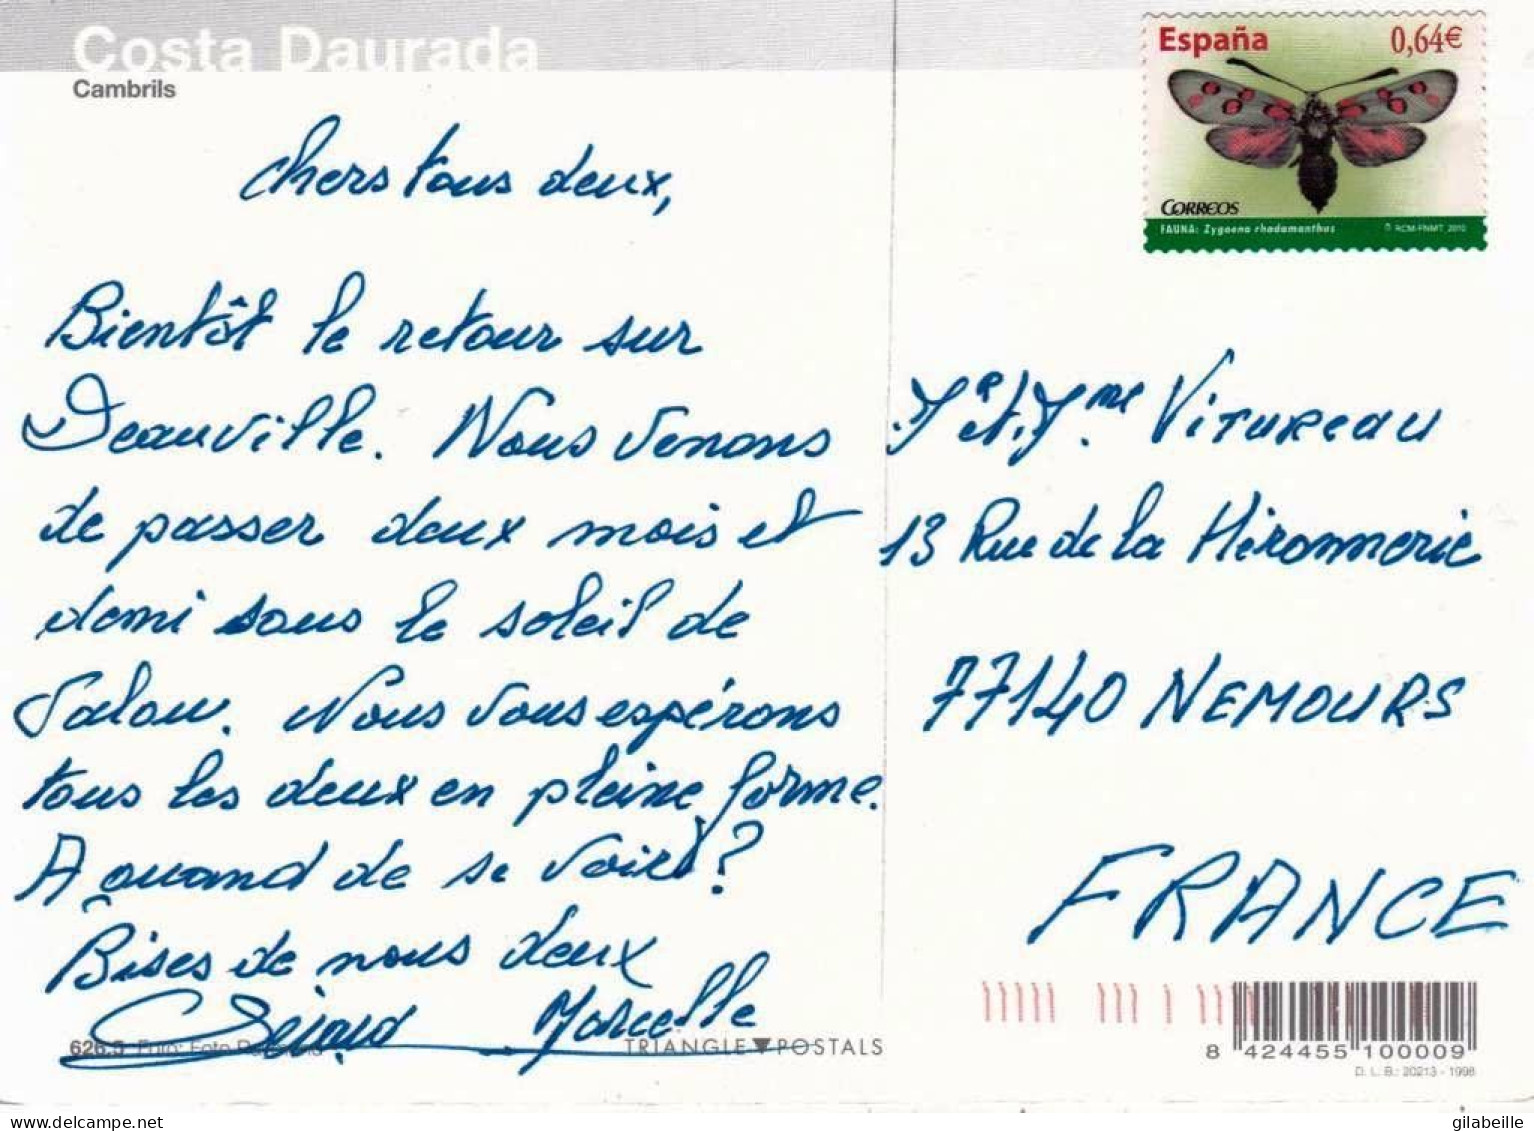 Costa Daurada
Cambrils
Chers tous deux,
Bientôt le retour sur
Deauville. Nous venons
de passer deux mois et
demi sous le soleil de
Salou. Nous vous espérons
tous les deux en pleine forme.
A quand de se voir ?
Bises de nous deux
Gérard Marcelle
626.5 Foto: Foto
TRIANGLE POSTALS
España 0,64€
CORREOS
FAUNA: Zygaena rhadamanthus © RCM-FNMT, 2010
Mr et Mme VITUREAU
13 Rue de la Hironnerie
77140 NEMOURS
FRANCE
8 424455 100009
D. L. B.: 20213 - 1998
gilabeille